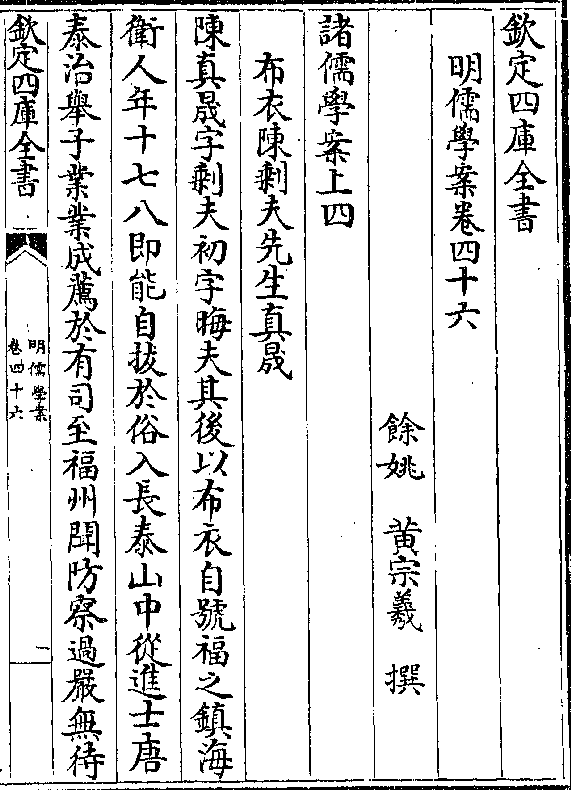 欽定四庫全書
明儒學案卷四十六
餘姚　黄宗羲　撰
諸儒學案上四
布衣陳剩夫先生真晟
陳真晟字剩夫初字晦夫其後以布衣自號福之鎮海
衛人年十七八即能自拔於俗入長泰山中從進士唐
泰治舉子業業成薦於有司至福州聞防察過嚴無待
欽定四庫全書
明儒學案
卷四十六
一